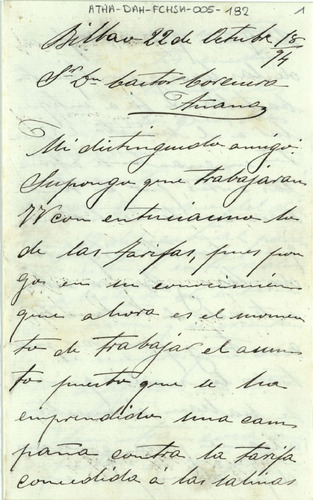 ATHA-DAH-FCHSH-005-182 1
Bilbao 22 de Octubre 15/94
Sr Dn Castor
Anana
Mi distinguido amigo:
Supongo que trabajaran
VV con entuciasmo lo
de las tarifas, pues pon
gos en su conocimien
que ahora es el momen
to de trabajar el asun
tos puesto que se ha
emprendido una cam
paña contra la tarifa
concedida á las salinas